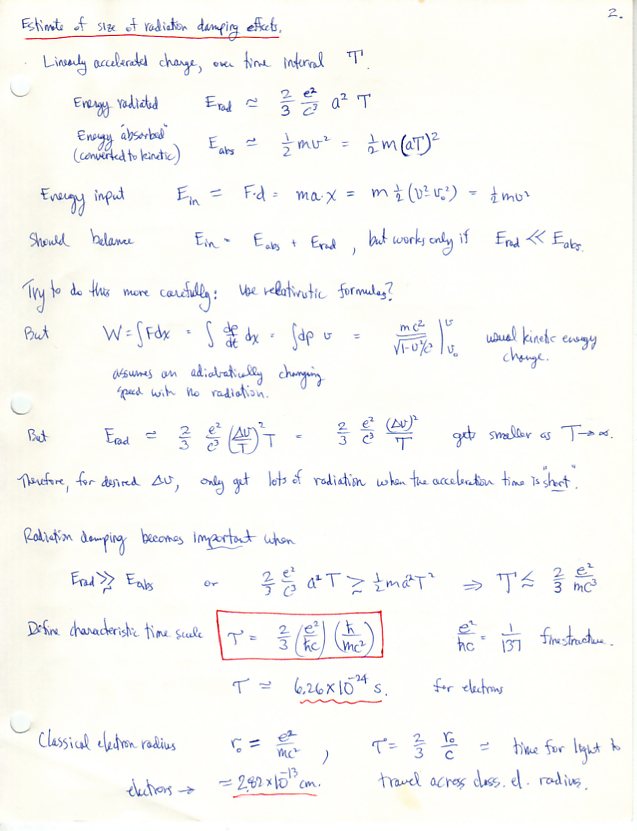 2.
Estimate of size of radiation damping effects.
Linearly accelerated charge, over time interval T.
Energy radiated E_rad ≃ 2/3 e²/c³ a² T
Energy "absorbed" (converted to kinetic) E_abs ≃ 1/2 mv² = 1/2 m (aT)²
Energy input E_in = F·d = ma·x = m 1/2 (v²-v₀²) = 1/2 mv²
Should balance E_in = E_abs + E_rad, but works only if E_rad ≪ E_abs.
Try to do this more carefully: Use relativistic formulas?
But W = ∫Fdx = ∫ dp/dt dx = ∫dp v = mc²/√(1-v²/c²) |_{v₀}^{v} usual kinetic energy change.
assumes an adiabatically changing
speed with no radiation.
But E_rad ≃ 2/3 e²/c³ (Δv/T)² T = 2/3 e²/c³ (Δv)²/T gets smaller as T→∞.
Therefore, for desired Δv, only get lots of radiation when the acceleration time is "short".
Radiation damping becomes important when
E_rad ≳ E_abs or 2/3 e²/c³ a² T ≳ 1/2 ma²T² ⇒ T ≲ 2/3 e²/mc³
Define characteristic time scale τ = 2/3 (e²/ħc) (ħ/mc²) e²/ħc = 1/137 fine structure.
τ ≃ 6.26×10⁻²⁴ s. for electrons
Classical electron radius r₀ = e²/mc² , τ = 2/3 r₀/c ≃ time for light to
electrons → ≃ 2.82×10⁻¹³ cm. travel across class. el. radius.